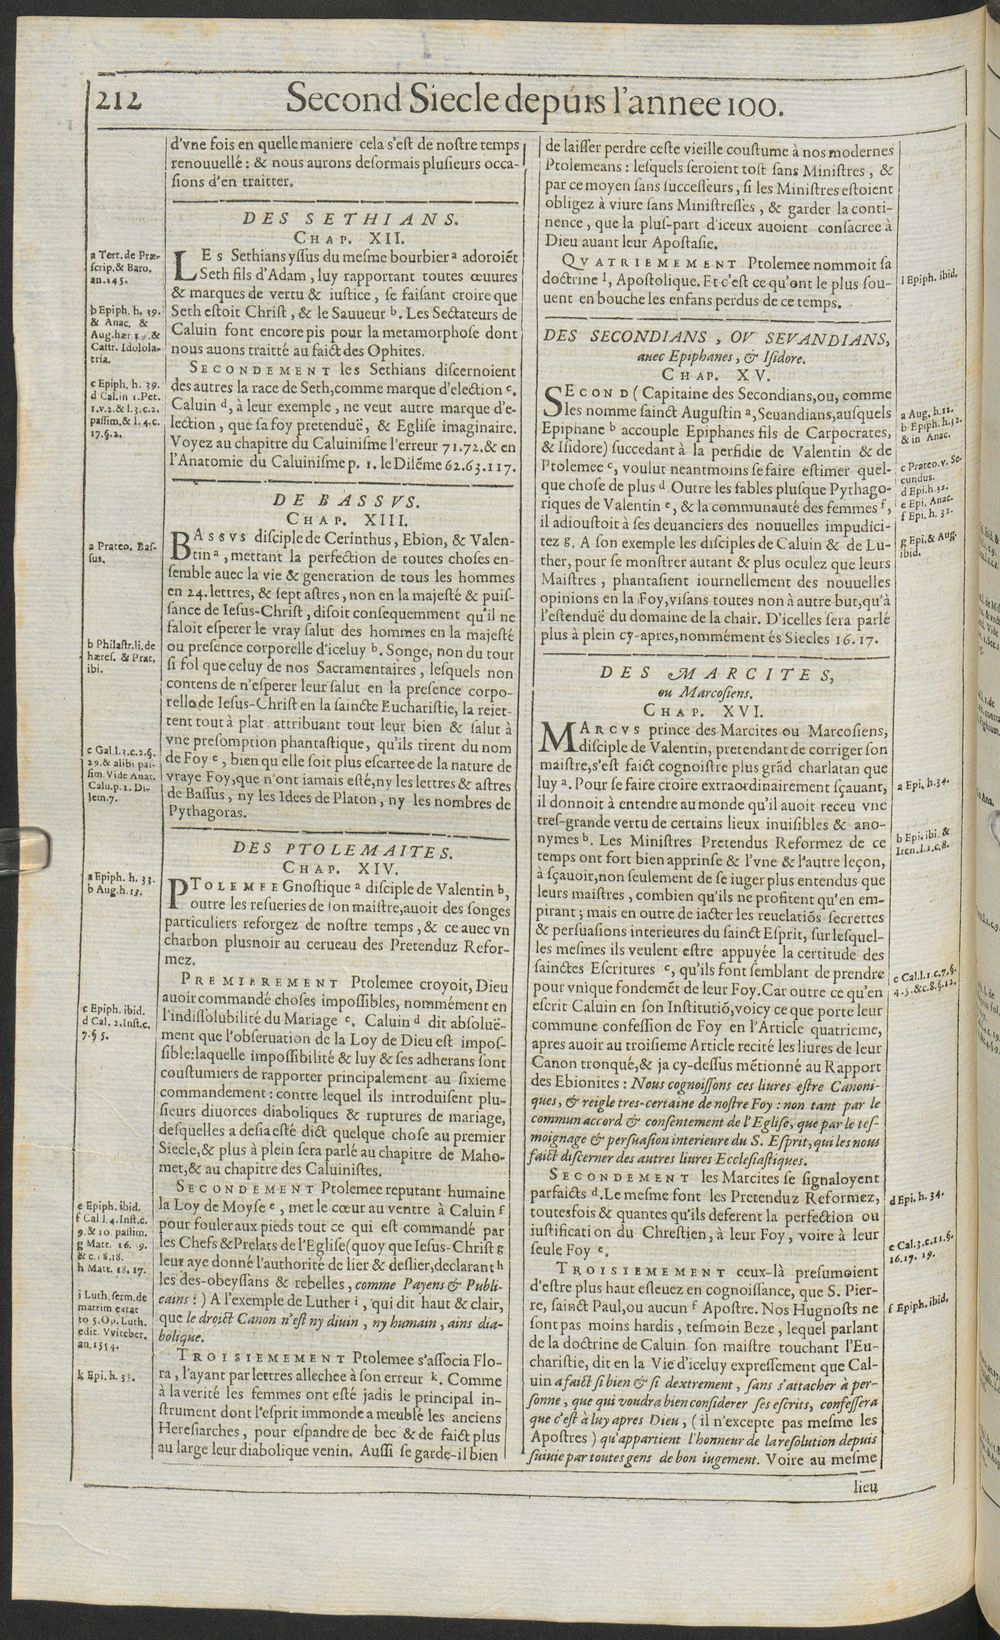 212
Second Siecle depuis l'annee 100.
d'vne fois en quelle maniere cela s'est de nostre temps
renouuellé : & nous aurons desormais plusieurs occa-
sions d'en traitter.
DES SETHIANS.
CHAP. XII.
LEs Sethians yssus du mesme bourbier a adoroiẽt
Seth fils d'Adam, luy rapportant toutes œuures
& marques de vertu & iustice, se faisant croire que
Seth estoit Christ, & le Sauueur b. Les Sectateurs de
Caluin font encore pis pour la metamorphose dont
nous auons traitté au faict des Ophites.
SECONDEMENT les Sethians discernoient
des autres la race de Seth, comme marque d'election c.
Caluin d, à leur exemple, ne veut autre marque d'e-
lection, que sa foy pretenduë, & Eglise imaginaire.
Voyez au chapitre du Caluinisme l'erreur 71.72. & en
l'Anatomie du Caluinisme p. 1. le Dilẽme 62.63.117.
a Tert. de Præ-
scrip. & Baro.
an. 145.
b Epiph. h. 39.
& Anac. &
Aug. hær 19. &
Castr. Idolola-
tria.
c Epiph. h. 39.
d Cal. in 1. Pet.
1.v.2. & l.3.c.2.
passim. & l. 4.c.
17.§.2.
DE BASSVS.
CHAP. XIII.
BASSVS disciple de Cerinthus, Ebion, & Valen-
tin a, mettant la perfection de toutes choses en-
semble auec la vie & generation de tous les hommes
en 24. lettres, & sept astres, non en la majesté & puis-
sance de Iesus-Christ, disoit consequemment qu'il ne
faloit esperer le vray salut des hommes en la majesté
ou presence corporelle d'iceluy b. Songe, non du tout
si fol que celuy de nos Sacramentaires, lesquels non
contens de n'esperer leur salut en la presence corpo-
relle de Iesus-Christ en la saincte Eucharistie, la reiet-
tent tout à plat, attribuant tout leur bien & salut à
vne presomption phantastique, qu'ils tirent du nom
de Foy c, bien qu'elle soit plus escartee de la nature de
vraye Foy, que n'ont iamais esté, ny les lettres & astres
de Bassus, ny les Idees de Platon, ny les nombres de
Pythagoras.
a Prateo. Bas-
sus.
b Philastr. li. de
hæres. & Prat.
ibi.
c Gal. l.3.c.2.§.
29. & alibi pas-
sim. Vide Anat.
Calu. p. 1. Di-
lem. 7.
DES PTOLEMAITES.
CHAP. XIV.
PTOLEMEE Gnostique a disciple de Valentin b,
outre les resueries de son maistre, auoit des songes
particuliers reforgez de nostre temps, & ce auec vn
charbon plus noir au cerueau des Pretenduz Refor-
mez.
PREMIEREMENT Ptolemee croyoit, Dieu
auoir commandé choses impossibles, nommément en
l'indissolubilité du Mariage c. Caluin d dit absoluë-
ment que l'obseruation de la Loy de Dieu est impos-
sible: laquelle impossibilité & luy & ses adherans sont
coustumiers de rapporter principalement au sixieme
commandement : contre lequel ils introduisent plu-
sieurs diuorces diaboliques & ruptures de mariage,
desquelles a desia esté dict quelque chose au premier
Siecle, & plus à plein sera parlé au chapitre de Maho-
met, & au chapitre des Caluinistes.
SECONDEMENT Ptolemee reputant humaine
la Loy de Moyse e, met le cœur au ventre à Caluin f
pour fouler aux pieds tout ce qui est commandé par
les Chefs & Prelats de l'Eglise (quoy que Iesus-Christ g
leur aye donné l'authorité de lier & deslier, declarant h
les des-obeyssans & rebelles, comme Payens & Publi-
cains : ) A l'exemple de Luther i, qui dit haut & clair,
que le droict Canon n'est ny diuin, ny humain, ains dia-
bolique.
TROISIEMEMENT Ptolemee s'associa Flo-
ra, l'ayant par lettres allechee à son erreur k. Comme
à la verité les femmes ont esté jadis le principal in-
strument dont l'esprit immonde a meublé les anciens
Heresiarches, pour espandre de bec & de faict plus
au large leur diabolique venin. Aussi se garde-il bien
a Epiph. h. 33.
b Aug. h. 13.
c Epiph. ibid.
d Cal. 2. Inst. c.
7.§ 5.
e Epiph. ibid.
f Cal l. 4. Inst. c.
9. & 10 passim.
g Matt. 16. 9.
& c. 18.18.
h Matt. 18. 17.
i Luth. serm. de
matrim extat
to 5. Op. Luth.
edit. Vviteber.
an. 1554.
k Epi. h. 33.
de laisser perdre ceste vieille coustume à nos modernes
Ptolemeans : lesquels seroient tost sans Ministres, &
par ce moyen sans successeurs, si les Ministres estoient
obligez à viure sans Ministresses, & garder la conti-
nence, que la plus-part d'iceux auoient consacree à
Dieu auant leur Apostasie.
QVATRIEMEMENT Ptolemee nommoit sa
doctrine l, Apostolique. Et c'est ce qu'ont le plus sou-
uent en bouche les enfans perdus de ce temps.
l Epiph. ibid.
DES SECONDIANS, OV SEVANDIANS,
auec Epiphanes, & Isidore.
CHAP. XV.
SECOND (Capitaine des Secondians, ou, comme
les nomme sainct Augustin a, Seuandians, ausquels
Epiphane b accouple Epiphanes fils de Carpocrates,
& Isidore) succedant à la perfidie de Valentin & de
Ptolemee c, voulut neantmoins se faire estimer quel-
que chose de plus d Outre les fables plusque Pythago-
riques de Valentin e, & la communauté des femmes f,
il adioustoit à ses deuanciers des nouuelles impudici-
tez g. A son exemple les disciples de Caluin & de Lu-
ther, pour se monstrer autant & plus oculez que leurs
Maistres, phantasient iournellement des nouuelles
opinions en la Foy, visans toutes non à autre but, qu'à
l'estenduë du domaine de la chair. D'icelles sera parlé
plus à plein cy-apres, nommément és Siecles 16. 17.
a Aug. h. 12.
b Epiph. h. 32.
& in Anac.
c Prateo. v. Se-
cundus.
d Epi. h. 32.
e Epi. Anac.
f Epi. h. 32.
g Epi. & Aug.
ibid.
DES MARCITES,
ou Marcosiens.
CHAP. XVI.
MARCVS prince des Marcites ou Marcosiens,
disciple de Valentin, pretendant de corriger son
maistre, s'est faict cognoistre plus grãd charlatan que
luy a. Pour se faire croire extraordinairement sçauant,
il donnoit à entendre au monde qu'il auoit receu vne
tres-grande vertu de certains lieux inuisibles & ano-
nymes b. Les Ministres Pretendus Reformez de ce
temps ont fort bien apprinse & l'vne & l'autre leçon,
à sçauoir, non seulement de se iuger plus entendus que
leurs maistres, combien qu'ils ne profitent qu'en em-
pirant ; mais en outre de iacter les reuelatiõs secrettes
& persuasions interieures du sainct Esprit, sur lesquel-
les mesmes ils veulent estre appuyée la certitude des
sainctes Escritures c, qu'ils font semblant de prendre
pour vnique fondemẽt de leur Foy. Car outre ce qu'en
escrit Caluin en son Institutiõ, voicy ce que porte leur
commune confession de Foy en l'Article quatrieme,
apres auoir au troisieme Article recité les liures de leur
Canon tronqué, & ja cy-dessus mẽtionné au Rapport
des Ebionites : Nous cognoissons ces liures estre Canoni-
ques, & reigle tres-certaine de nostre Foy : non tant par le
commun accord & consentement de l'Eglise, que par le tes-
moignage & persuasion interieure du S. Esprit, qui les nous
faict discerner des autres liures Ecclesiastiques.
SECONDEMENT les Marcites se signaloyent
parfaicts d. Le mesme font les Pretenduz Reformez,
toutesfois & quantes qu'ils deferent la perfection ou
iustification du Chrestien, à leur Foy, voire à leur
seule Foy e.
TROISIEMEMENT ceux-là presumoient
d'estre plus haut esleuez en cognoissance, que S. Pier-
re, sainct Paul, ou aucun f Apostre. Nos Hugnosts ne
sont pas moins hardis, tesmoin Beze, lequel parlant
de la doctrine de Caluin son maistre touchant l'Eu-
charistie, dit en la Vie d'iceluy expressement que Cal-
uin a faict si bien & si dextrement, sans s'attacher à per-
sonne, que qui voudra bien considerer ses escrits, confessera
que c'est à luy apres Dieu, ( il n'excepte pas mesme les
Apostres ) qu'appartient l'honneur de la resolution depuis
suiuie par toutes gens de bon iugement. Voire au mesme
lieu
a Epi, h. 34.
b Epi. ibi. &
Iren. l.1.c.8.
c Cal. l. 1 c.7.§.
4.5. & c.8.§.12.
d Epi. h. 34.
e Cal. 3.c.11.§.
16.17. 19.
f Epiph. ibid.